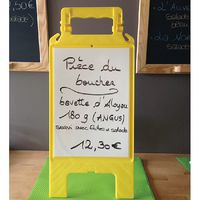 2,50€
Pièce du
boucher
bavette d'Aloyau
180 g (ANGUS)
servi avec frites & salade
12,30€
L'Auve
Salade